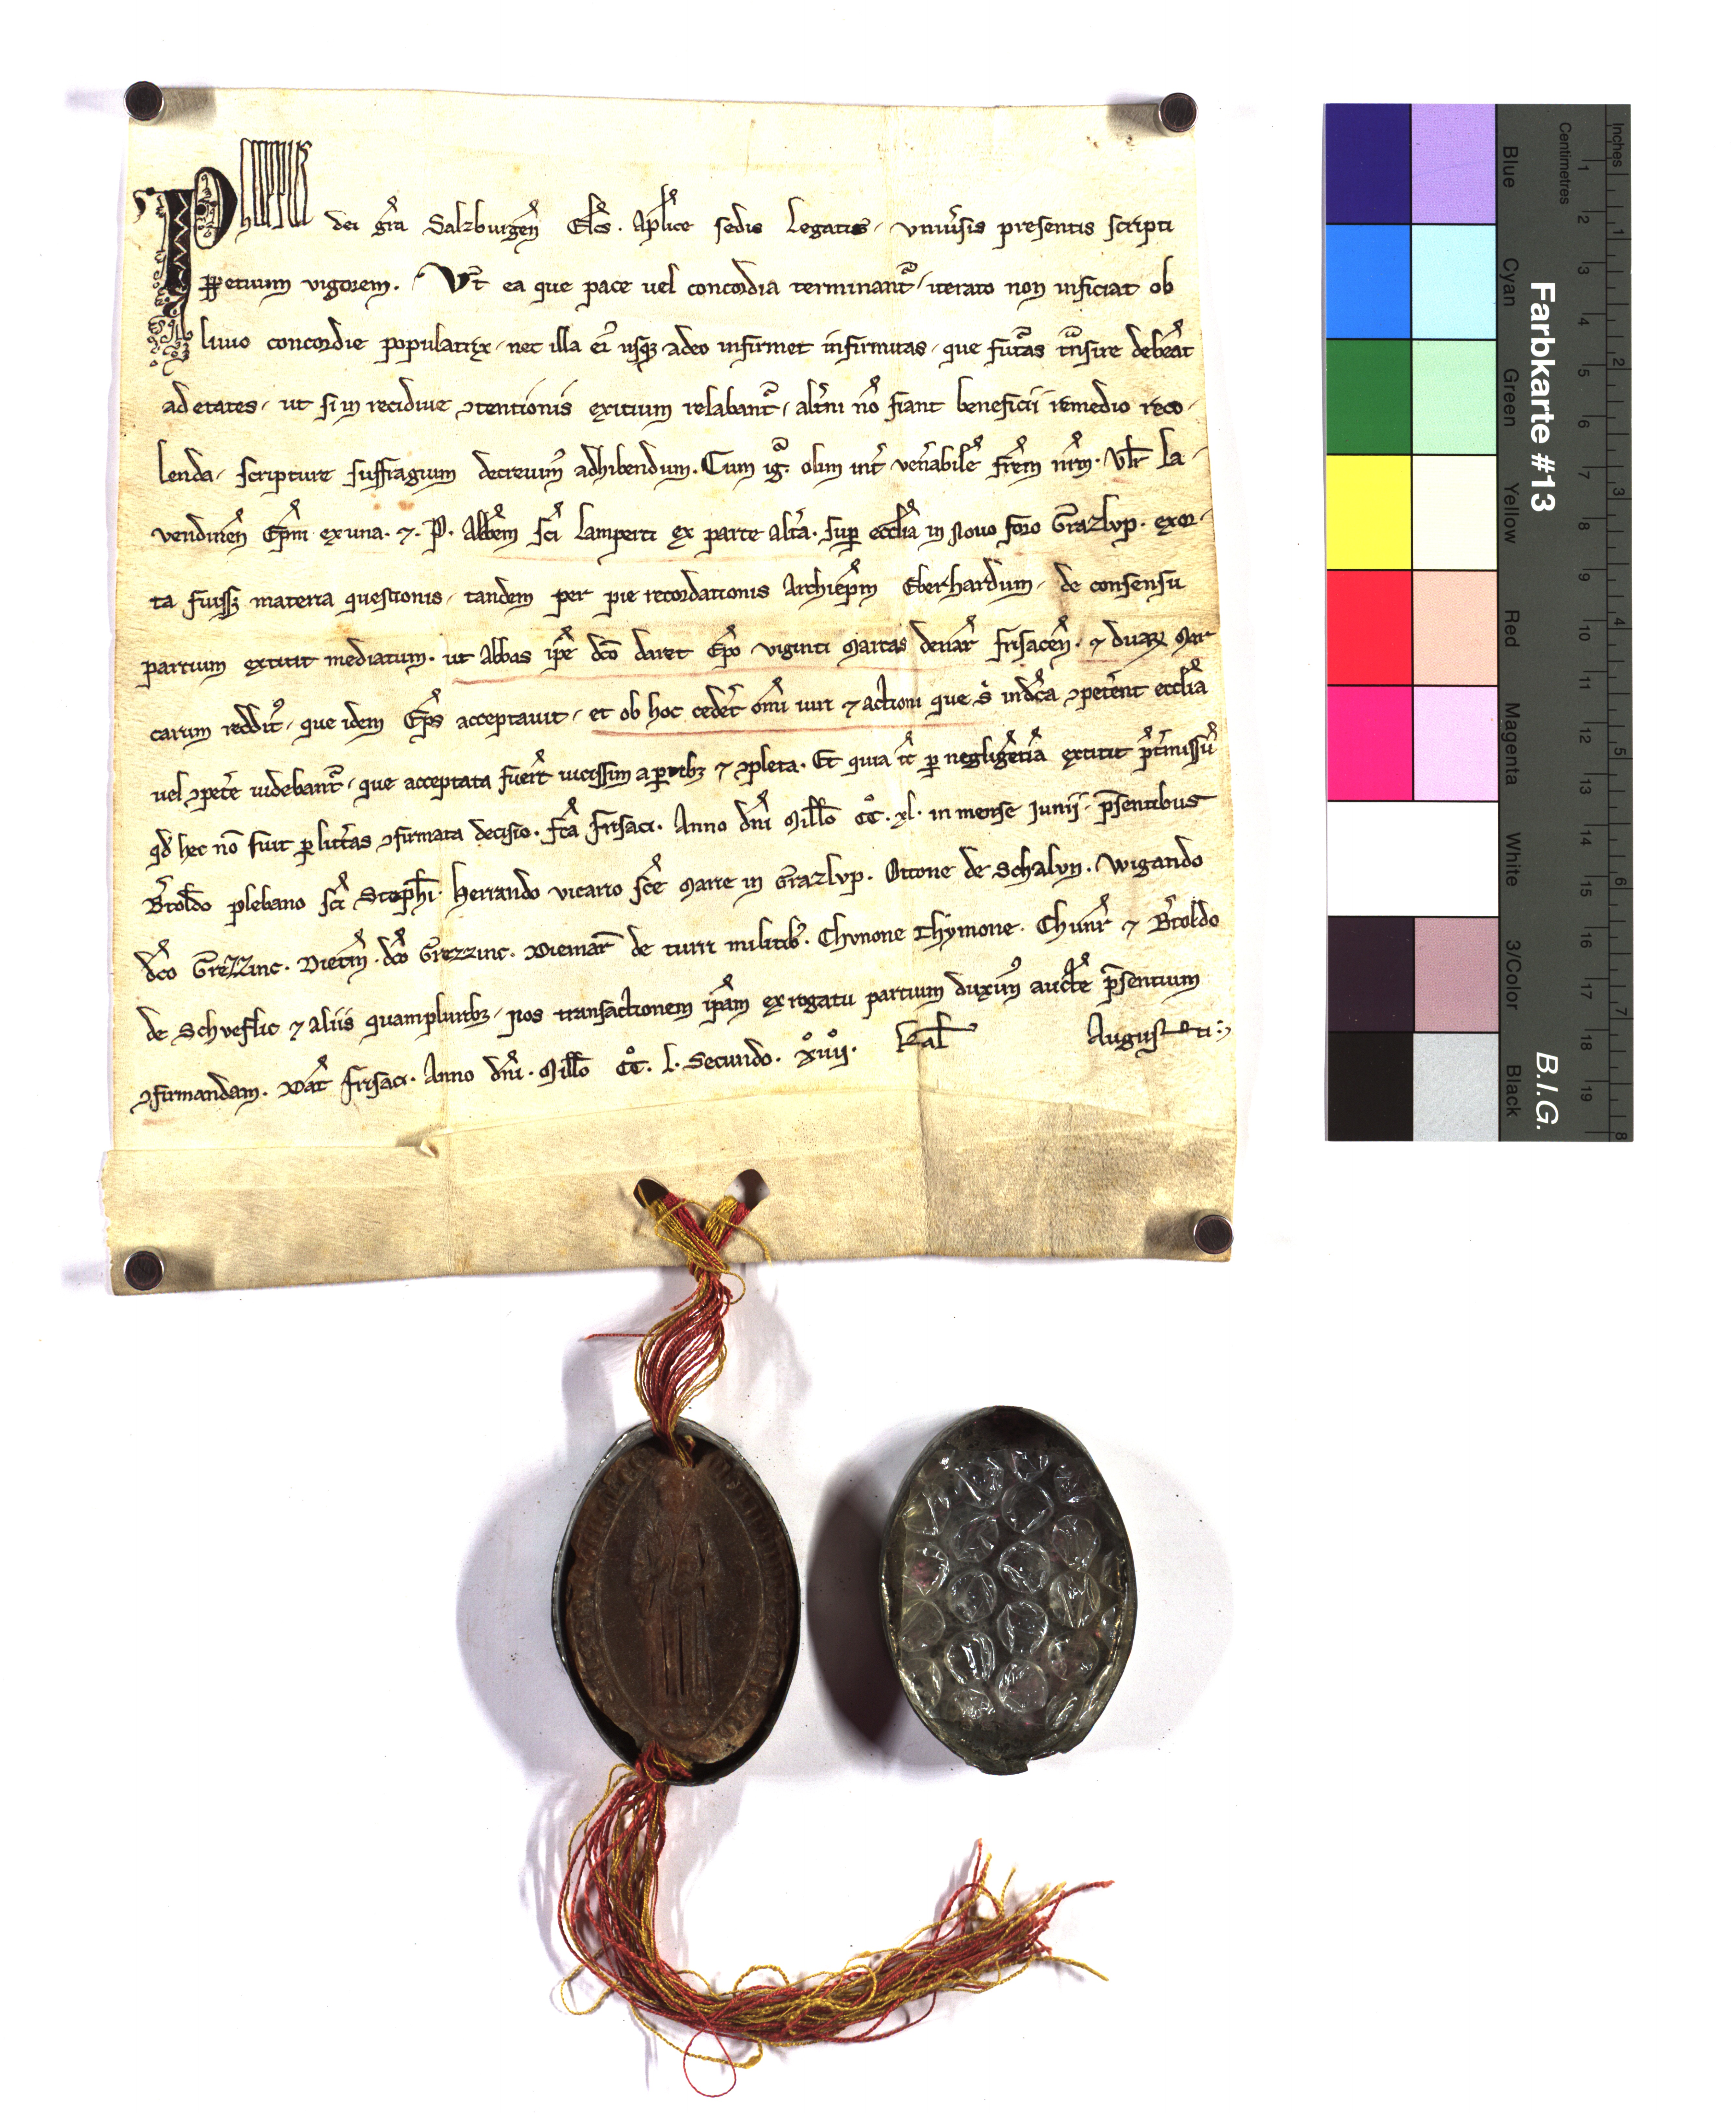 Philippus dei gr̄a Salzburgen̄ Elc̄s. Apl̄ice sedis Legatus. vniu̾sis presentis scripti
ꝑpetuum vigorem. Vt̄ ea que pace uel concordia terminant᷑, iterato non inficiat ob
liuio concordie populatrix, nec illa ei᷑ usqꝫ adeo infirmet infirmitas, que fut᷑as t̄nsire deb̄eat
ad etates, ut si in recidiue ↄtentionis exitium relabant᷑, alt̾ni nō fiant beneficii remedio reco-
lenda, scripture suffragium decreuim᷒ adhibendum. Cum ig᷑. olim int̾ ven̾abilē fr̄em nr̄m. Vlr̄ La-
vendinen̄ Ep̄m ex una. ⁊. P. Abb̄em sc̄i Lamperti ex parte alt̾a. suꝑ eccl̄ia in Nouo foro Grazlvp. exor-
ta fuissꝫ materia questionis, tandem per pie recordationis Archiep̄m Eberhardum, de consensu
partium extitit mediatum. ut Abbas ip̄e dc̄o daret Ep̄o viginti Marcas denar̄ frisacen̄. ⁊ duaꝝ Mar
carum reddit᷒, que idem Ep̄s acceptauit, et ob hoc cedet̾ om̄i iuri ⁊ actioni que s᷑ in dc̄a ↄpet̾ent eccl̄ia
uel ↄpet̾e uidebant᷑, que acceptata fuer̄t uicissim a ꝑtibꝫ ⁊ ↄpleta. Et quia t̄c ꝑ negligen̄tiā extitit p̄t̾missū
qd̄ hec nō fuit ꝑ litt̾as ↄfirmata decisio. fc̄a frisaci. Anno dn̄i Mill̄o C̊C. xl. in mense Iunii. p̄sentibus
B̾toldo plebano sc̄i Steph̄i. Herrando vicario sc̄e Marie in Grazlvp. Ottone de Schalvn. Wigando
dc̄o Grezzinc. Dietm̄. dc̄o Grezzinc. Diemar̄ de turri militib᷒. Chvnone Thymone. Chunr̄ ⁊ B̾toldo
de Schveflic ⁊ aliis quampluribꝫ, Nos transactionem ip̄am ex rogatu partium duxim᷒ auct̄e p̄sentium
ↄfirmandam. Dat̄ frisaci. Anno dn̄i. Mill̄o C̊C. l. Secundo. xiiii. Kal̄ Augusti
Farbkarte #13
B.I.G.
Inches
Centimetres
1 2 3 4 5 6 7 8 9 10 11 12 13 14 15 16 17 18 19
1 2 3 4 5 6 7 8
Blue
Cyan
Green
Yellow
Red
Magenta
White
3/Color
Black